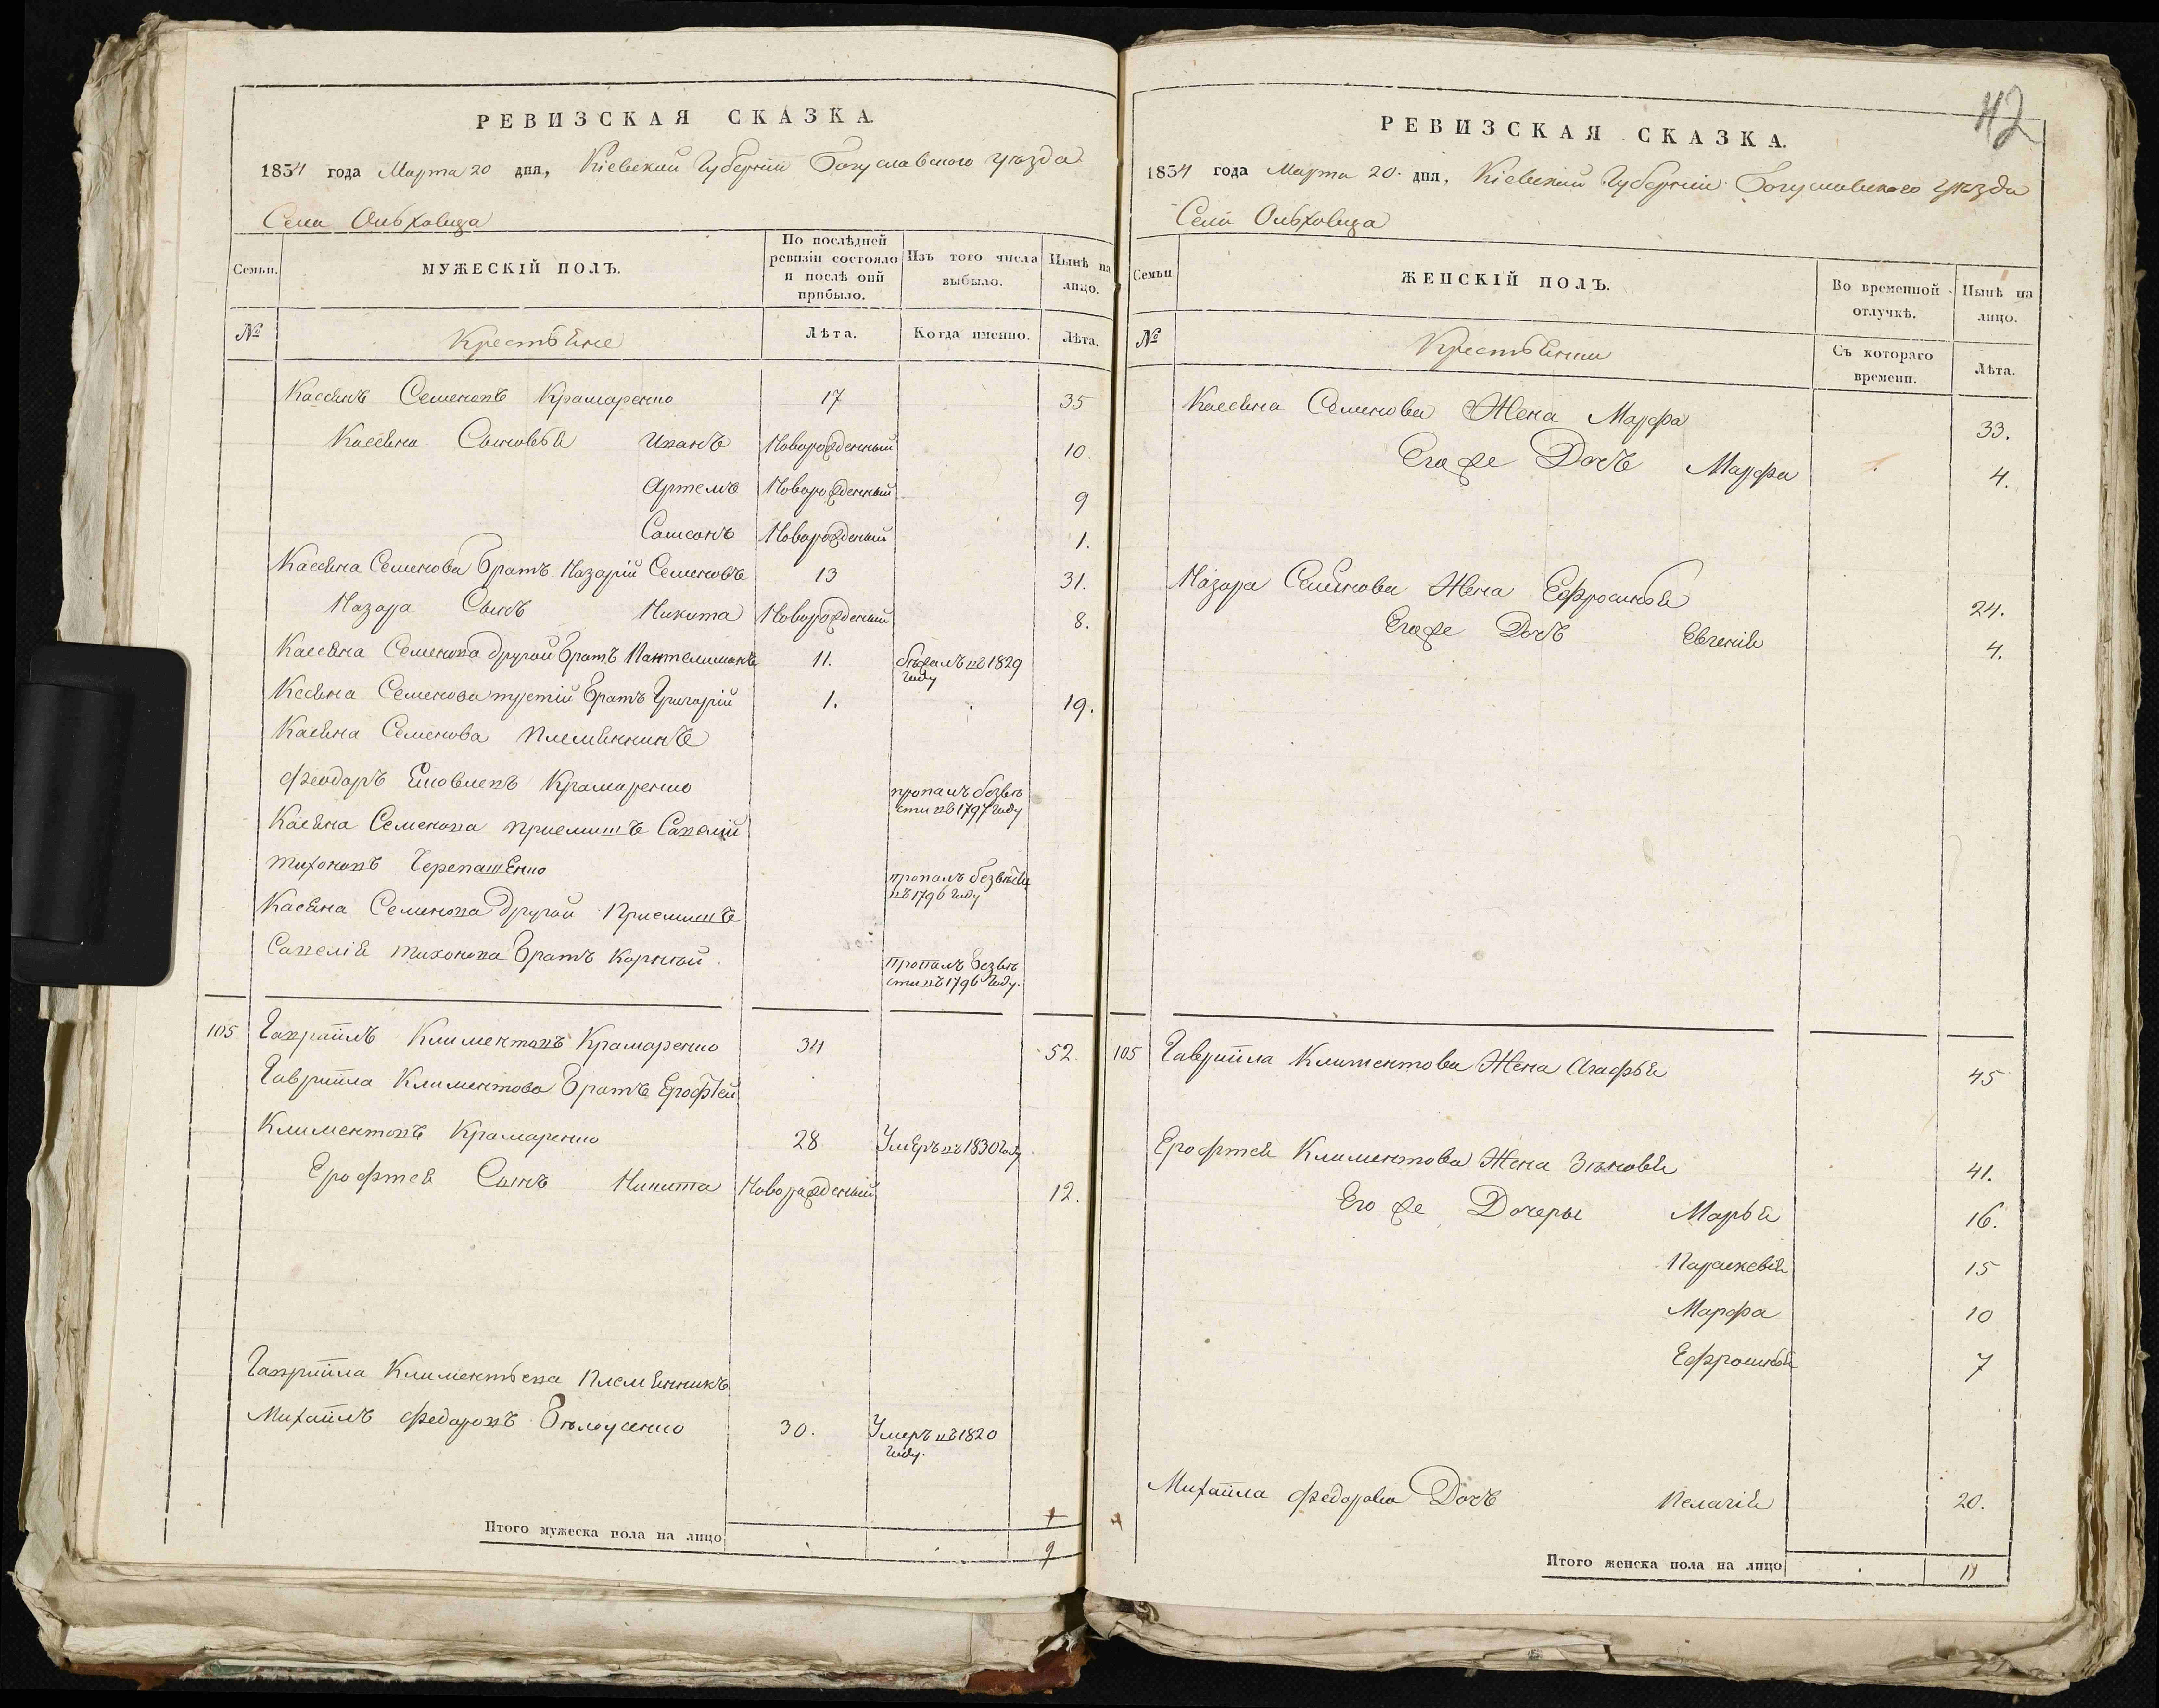 РЕВИЗСКАЯ СКАЗКА.
1834 года Марта 20 дня, Кіевской Губерніи Богуславского уѣзда
Села Ольховца
Семьи.
МУЖЕСКІЙ ПОЛЪ.
По послѣдней ревизіи состояло и послѣ оной прибыло.
Изъ того числа выбыло.
Нынѣ на лицо.
№
Крестьяне
Лѣта.
Когда именно.
Лѣта.
Касьянъ Семеновъ Крамаренко 17 35
Касьяна Сыновья Иванъ Новорожденный 10.
Артемъ Новорожденный 9
Самсонъ Новорожденый 1.
Касьяна Семенова Братъ Назарій Семеновъ 13 31.
Назара Сынъ Никита Новорожденый 8.
Касьяна Семенова другой Братъ Пантелимонъ 11. бѣжалъ въ 1829 году
Касьяна Семенова третій Братъ Григорій 1. 19.
Касьяна Семенова Племянникъ
Феодоръ Яковлевъ Крамаренко пропалъ безвѣсти въ 1797 году
Касьяна Семенова приемышъ Савелій
Тихоновъ Черепашенко пропалъ безвѣсти въ 1796 году
Касьяна Семенова другой Приемышъ
Савелія Тихонова Братъ Корнѣй пропалъ безвѣсти въ 1796 году.
105 Гавріилъ Климентовъ Крамаренко 34 52.
Гавріила Климентова Братъ Ерофѣй
Климентовъ Крамаренко 28 Умеръ въ 1830 году
Ерофтея Сынъ Никита Новорожденый 12.
Гавріила Климентьева Племянникъ
Михаилъ Федоровъ Бѣлоусенко 30. Умеръ въ 1820 году.
Итого мужеска пола на лицо 9
42
РЕВИЗСКАЯ СКАЗКА.
1834 года Марта 20. дня, Кіевской Губерніи Богуславского уѣзда
Села Ольховца
Семьи
ЖЕНСКІЙ ПОЛЪ.
Во временной отлучкѣ.
Нынѣ на лицо.
№
Крестьянки
Съ котораго времени.
Лѣта.
Касьяна Семенова Жена Марфа 33.
Его же Дочь Марфа 4.
Назара Семенова Жена Ефросинья 24.
Его же Дочь Евгенія 4.
105 Гавріила Климентова Жена Агафья 45
Ерофтея Климентова Жена Зѣновья 41.
Его же Дочеры Марья 16.
Параскевія 15
Марфа 10
Ефросинья 7
Михаила Федорова Дочь Пелагія 20.
Итого женска пола на лицо 11